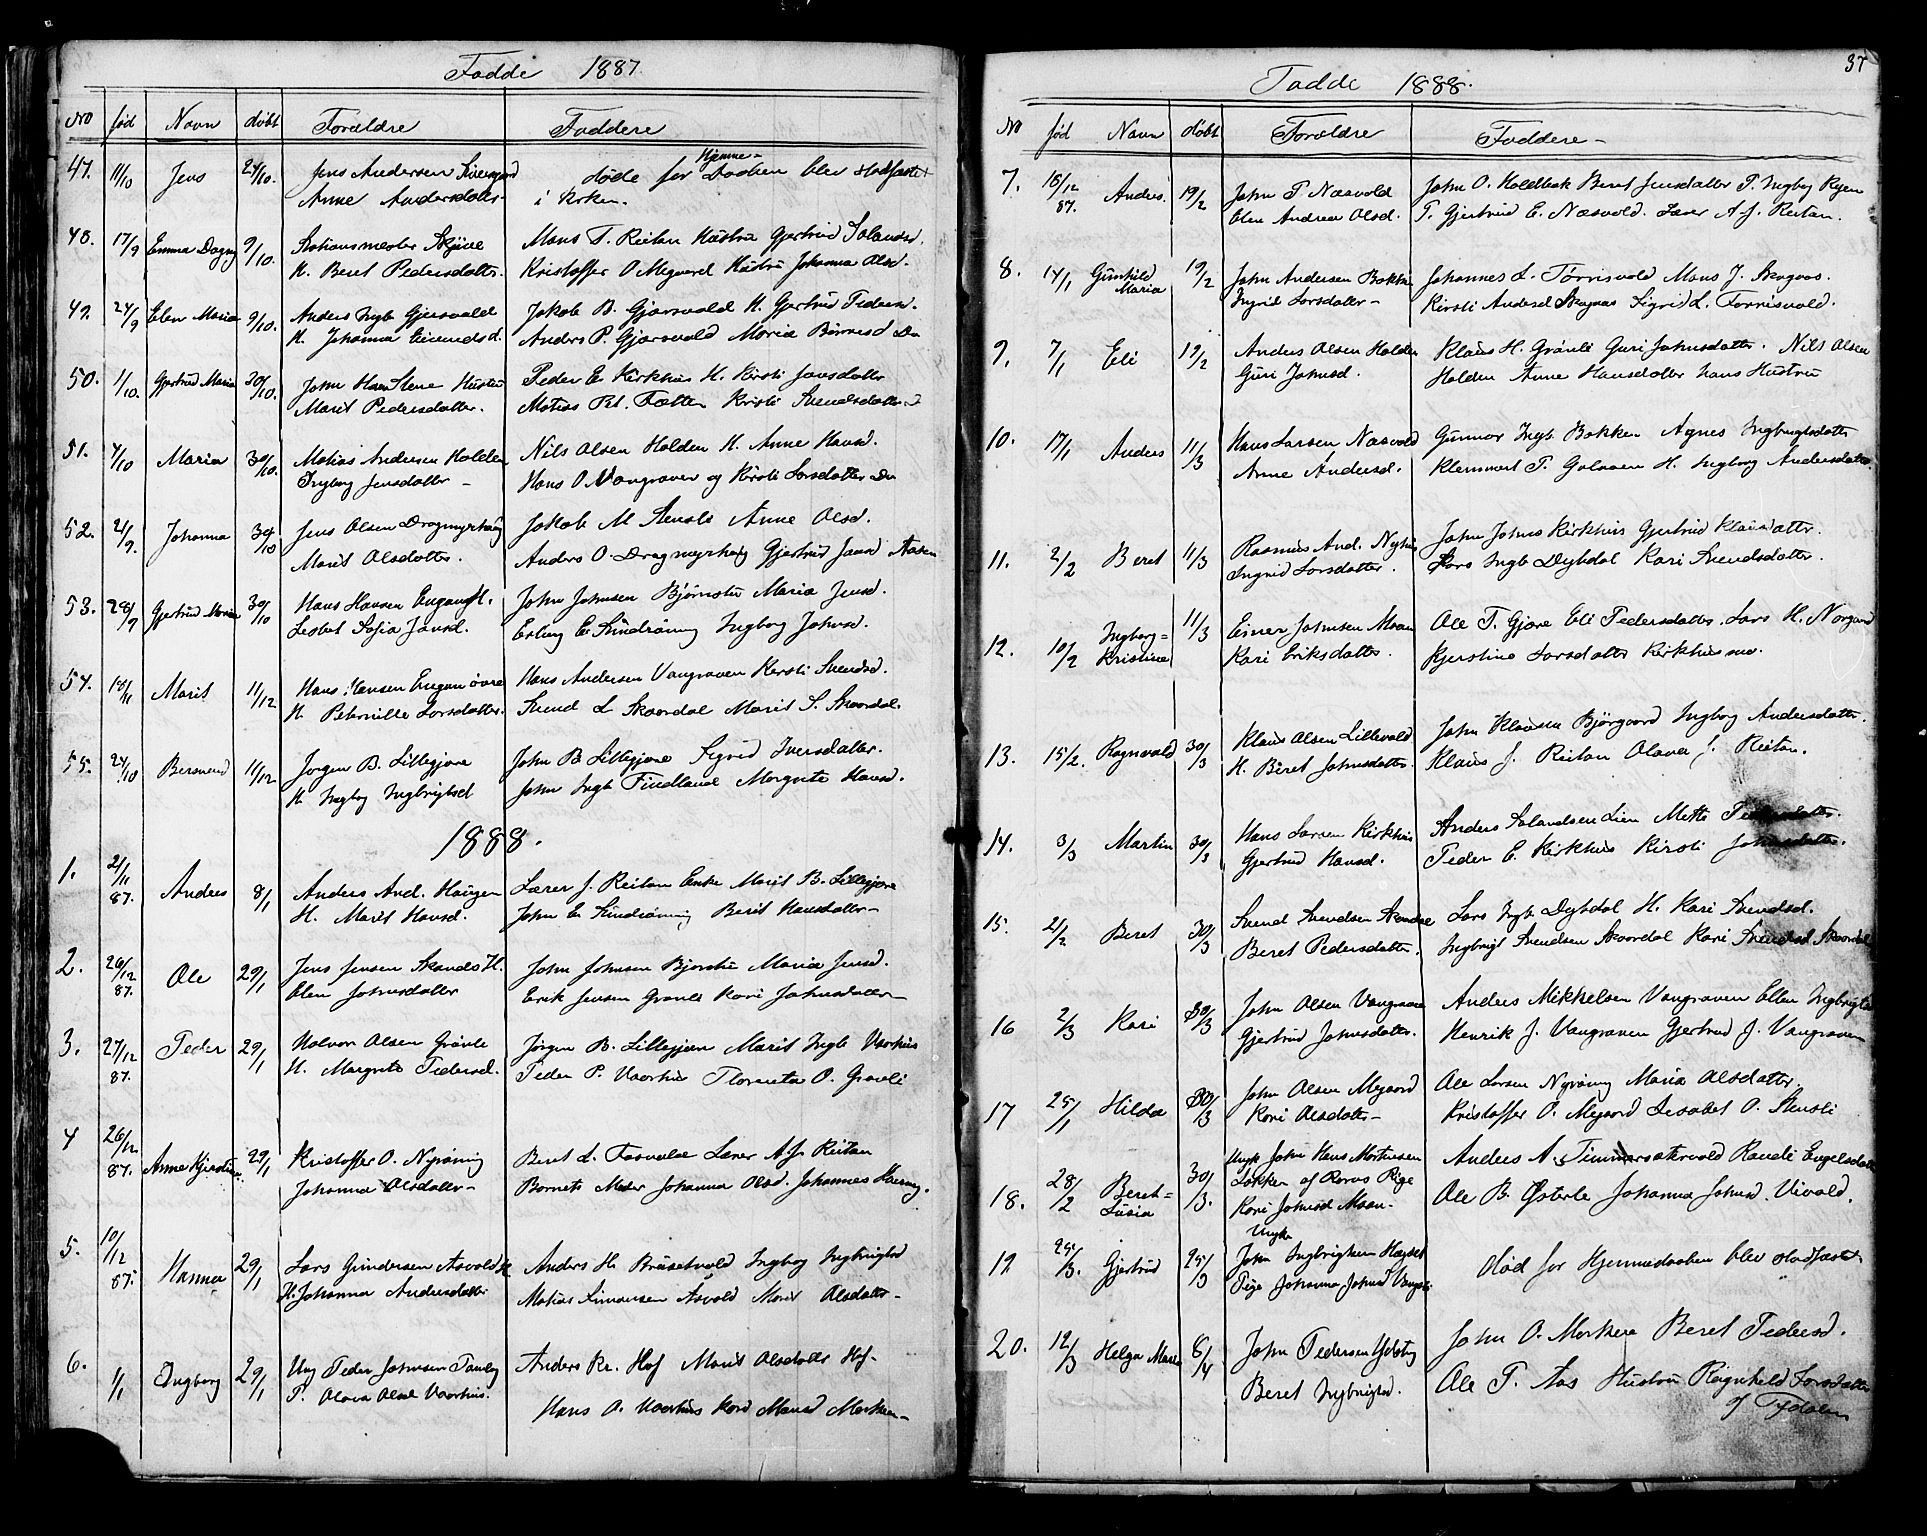 Fødde 1887.
No født Navn døbt Forældre Faddere
47. 11/10 Jens 24/10. Jens Andersen
Anne Andersdatter
døde før Hjemme-Daaben blev stadfæstet
i Kirken.
48. 17/9 Emma Dagny 9/10. Stationsmester Skjive
H. Beret Pedersdatter.
Mons T. Reitan Hustru Gjertrud
Kristoffer O Megaard Hustru Johanna Olsd.
49. 24/9 Elen Maria 9/10. Anders Ingb Gjersvold
H. Johanna Eivendsd.
Jakob B. Gjersvold H. Gjertrud Pedersd.
Anders P. Gjersvold Maria
50. 1/10. Gjertrud Maria 30/10. John Stene Hustru
Marit Pedersdatter.
Peder E Kirkhus H. Kirsti Jonsdatter
Matias Kirsti Svendsdatter
51. 4/10 Maria 30/10. Matias Andersen Holden
Ingborg Jensdatter
Nils Olsen Holden H. Anne Hansd.
Hans O Vangraven og Kirsti Larsdatter
52. 21/9. Johanna 30/10 Jens Olsen Dragmyrhaug
Marit Olsdatter.
Jakob M Stensli Anne Olsd.
Anders O. Dragmyrhaug Gjertrud Jansd Aasen
53. 28/9 Gjertrud Maria 30/10 Hans Hansen Engan H.
Lesbet Sofia Jansd.
John Johnsen Bjørnsti Maria Jensd.
Erling E Sundrøning Ingborg Johnsd.
54. 18/11 Marit 11/12 Hans Hansen Engan øvre
H. Peternille Larsdatter
Hans Andersen Vangraven Kersti Svendsd.
Svend L Skaardal Marit S. Skaardal.
55. 24/10 Bersvend 11/12 Jørgen B. Lillegjøre
H. Ingbog Ingbrigtsd
John B Lillegjøre Sigrid Iversdatter.
John Ingb Findland Margrete Hansd.
1888.
1. 21/11 87. Anders 8/1 Anders And. Haugen
H. Marit Hansd.
Lærer J. Reitan Enke Marit B. Lillegjøre
John E Sundrøning Berit Hansdatter
2. 26/12 87. Ole 29/1 Jens Jensen Skands H.
Elen Johnsdatter
John Johnsen Bjørsti Maria Jensd.
Erik Jensen Grønli Kari Johnsdatter
3. 27/12 87. Peder 29/1 Halvor Olsen Grønli
H. Margrete Pedersd.
Jørgen B. Lillegjøre Marit Ingb Vaarhus
Peder P. Vaarhus O. Grønli
4 26/12 87. Anne Kjerstine 29/1 Kristoffer O. Nyrøning
Johanna Olsdatter
Beret L. Lærer A. J. Reitan
Barnets Moder Johanna Olsd. Johannes
5. 10/12 87. Hanna 29/1 Lars Gundersen Asvold
H. Johanna Andersdatter
Anders H. Brusetvold Ingborg Ingbrigtsd
Matias Simonsen Asvold Marit Olsdatter
6. 1/1 Ingborg 29/1 Ung Peder Johnsen
P. Olava Olsd Vaarhus.
Anders Kr. Hof Marit Olsdatter Hof
Hans O. Vaarhus
37
Fødde 1888.
No født Navn døbt Forældre Faddere
7. 18/12 87. Anders 19/2 John T Næsvold
Elen Andrea Olsd.
John O. Holdbak Beret Jensdatter P. Ingbog Ryen
P. Gjertrud E. Næsvold. Lærer A. J. Reitan.
8. 14/1 Gunhild Maria 19/2 John Andersen Bakken
Ingrid Larsdatter
Johannes L. Torrisvold Mons J. Skognas.
Kirsti Andersd Skognas Sigrid L. Torrisvold.
9. 7/1 Eli 19/2 Anders Olsen Holden
Guri Johnsd.
Klaus H. Grønli Guri Johnsdatter. Nils Olsen
Holden Anne Hansdatter hans Hustru
10. 17/1 Anders 11/3 Hans Larsen Næsvold
Anne Andersd.
Gunnar Ingb Bakken Agnes Ingbrigtsdatter
Klemmert P. Galaaen H. Ingborg Andersdatter
11. 2/2 Beret 11/3 Rasmus And. Nyhus
Ingrid Larsdatter.
John Johns Kirkhus Gjertrud Klausdatter.
Lars Ingb Dybdal Kari Svendsdatter.
12. 10/2 Ingborg Kristine 11/3 Einer Johnsen Moan
Kari Eriksdatter.
Ole T. Gjøre Eli Pedersdatter. Lars H. Norgaard
Kjerstine Larsdatter Kirkhusmo.
13. 15/2. Ragnvald 30/3 Klaus Olsen Lillevold
H. Beret Johnsdatter.
John Klausen Bjørgaard Ingborg Andersdatter.
Klaus J. Reitan Olava J. Reitan.
14. 3/3 Martin 30/3 Hans Larsen Kirkhus
Gjertrud Hansd.
Anders Salandsen Lien Mette Pedersdatter.
Peder E. Kirkhus Kirsti Johnsdatter.
15. 21/2 Beret 30/3 Svend Svendsen Skaardal
Beret Pedersdatter.
Lars Ingb Dybdal H. Kari Svendsd.
Ingbrigt Svendsen Skaardal Kari Svendsd Skaardal
16 2/3 Kari 30/3 John Olsen Vangraven
Gjertrud Johnsdatter.
Anders Mikkelsen Vangraven Ellen Ingbrigtsd
Henrik J. Vangraven Gjertrud J. Vangraven
17 25/1 Hilda 30/3 John Olsen Megaard
Kari Olsdatter
Ole Larsen Nyrøning Maria Olsdatter.
Kristoffer O. Megaard Lisabet O. Stensli
18. 28/2 Beret Lusia 30/3. Ungk John Hans Mortensen
Løkken af Røros Pige
Kari Johnsd Moan
Anders A. Timmersætervold Randi Engelsdatter
Ole B. Østerle Johanna Johnsd. Vivold.
19 25/3. Gjertrud 25/3 Ungk
John Ingbrigtsen
Pige Johanna Johnsd
død før Hjemmedaaben blev stadfæstet
20. 12/3 Helga Maria 8/4 John Pedersen
Beret Ingbrigtsd.
John O. Morken Beret Pedersd.
Ole P. Aas Hustru Ragnhild Larsdatter
af Tydalen